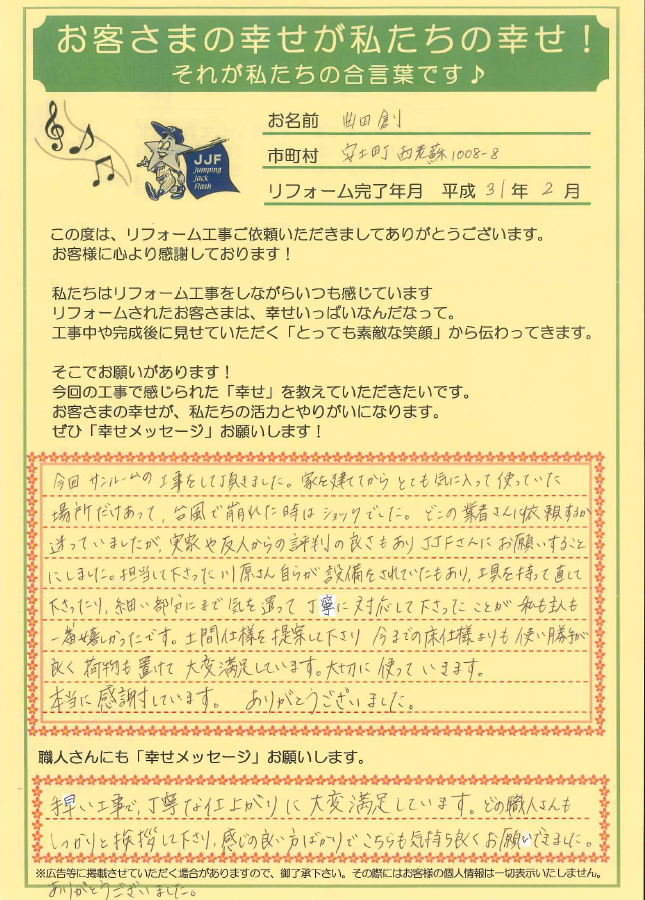 お客さまの幸せが私たちの幸せ！
それが私たちの合言葉です♪
JJF
Jumping
Jack
Flash
お名前 山田 創
市町村 安土町 西老蘇1008-8
リフォーム完了年月 平成 31 年 2 月
この度は、リフォーム工事ご依頼いただきましてありがとうございます。
お客様に心より感謝しております！
私たちはリフォーム工事をしながらいつも感じています
リフォームされたお客さまは、幸せいっぱいなんだなって。
工事中や完成後に見せていただく「とっても素敵な笑顔」から伝わってきます。
そこでお願いがあります！
今回の工事で感じられた「幸せ」を教えていただきたいです。
お客さまの幸せが、私たちの活力とやりがいになります。
ぜひ「幸せメッセージ」お願いします！
今回 サンルームの工事をして頂きました。家を建ててから とても気に入って使っていた
場所だけあって、台風で崩れた時は ショックでした。どこの業者さんに依頼するか
迷っていましたが、実家や友人からの評判の良さもあり JJFさんにお願いすること
にしました。担当して下さった川原さん自らが設備をされていたもあり、工具を持って直して
下さったり、細い部分にまで気を遣って 丁寧に対応して下さったことが 私も主人も
一番嬉しかったです。土間仕様を提案して下さり 今までの床仕様よりも使い勝手が
良く 荷物も置けて 大変満足しています。大切に使っていきます。
本当に感謝しています。 ありがとうございました。
職人さんにも「幸せメッセージ」お願いします。
手早い工事で、丁寧な仕上がりに大変満足しています。どの職人さんも
しっかりと挨拶して下さり、感じの良い方ばかりでこちらも気持ち良くお願いできました。
※広告等に掲載させていただく場合がありますので、御了承下さい。その際にはお客様の個人情報は一切表示いたしません。
ありがとうございました。